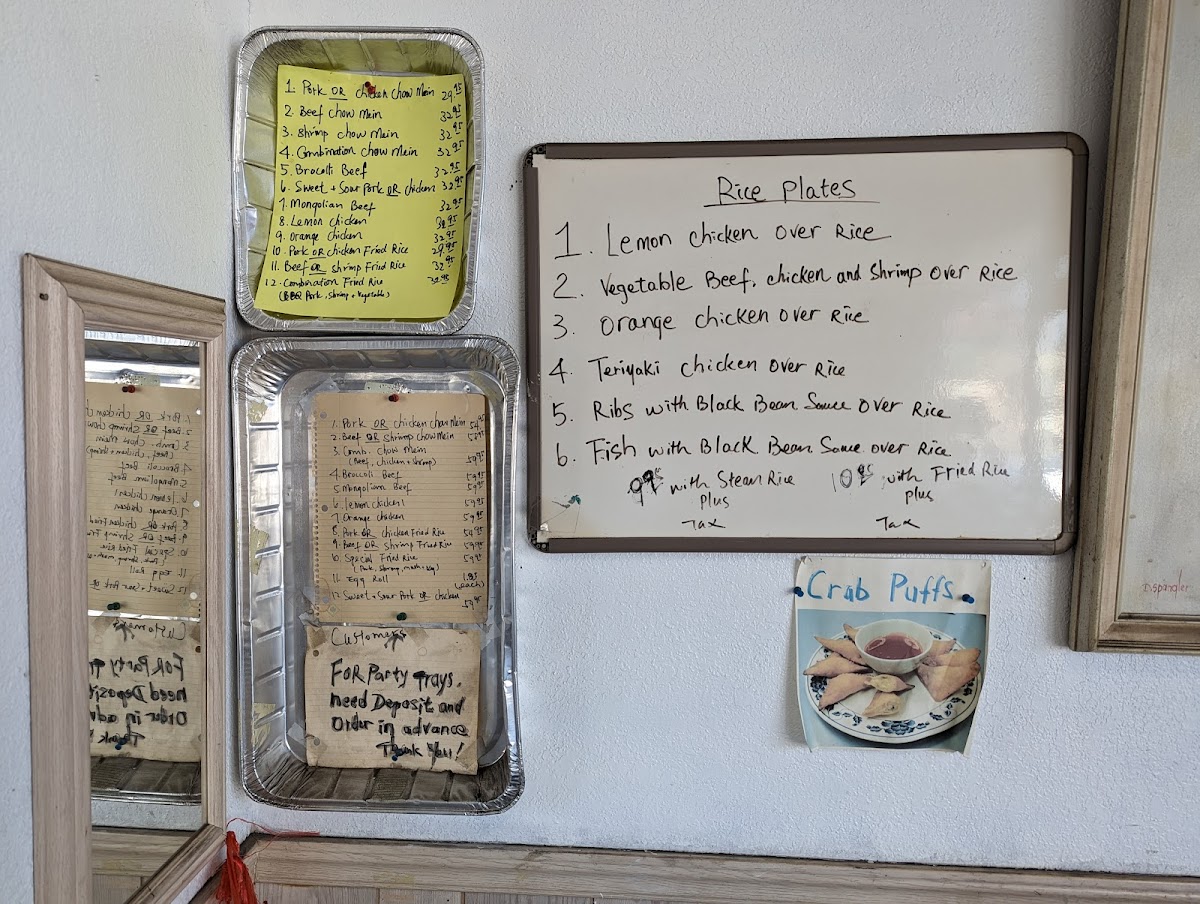 1. Pork OR chicken chow Mein 29.95
2. Beef chow Mein 32.95
3. shrimp chow Mein 32.95
4. Combination chow Mein 32.95
5. Brocolli Beef 32.95
6. Sweet + Sour Pork OR chicken 32.95
7. Mongolian Beef 32.95
8. Lemon chicken 32.95
9. Orange chicken 32.95
10. Pork OR chicken Fried Rice 29.95
11. Beef OR shrimp Fried Rice 32.95
12. Combination Fried Rice 32.95
(BBQ Pork, Shrimp + Vegetable)
1. Pork OR chicken chow Mein 54.95
2. Beef OR shrimp chow Mein 59.95
3. Comb. chow Mein
(Beef, chicken + shrimp) 59.95
4. Broccoli Beef 59.95
5. Mongolian Beef 59.95
6. lemon chicken 59.95
7. Orange chicken 59.95
8. Pork OR chicken Fried Rice 54.95
9. Beef OR shrimp Fried Rice 59.95
10. Special Fried Rice 59.95
11. Egg Roll (each)
12. Sweet + Sour Pork OR chicken 59.95
Customers
FOR Party Trays,
need Deposit and
Order in advance
Thank You!
Rice Plates
1. Lemon chicken Over Rice
2. Vegetable Beef, chicken and Shrimp Over Rice
3. Orange chicken Over Rice
4. Teriyaki chicken Over Rice
5. Ribs with Black Bean Sauce Over Rice
6. Fish with Black Bean Sauce over Rice
with Steam Rice with Fried Rice
plus plus
Tax Tax
Crab Puffs
D. Spangler